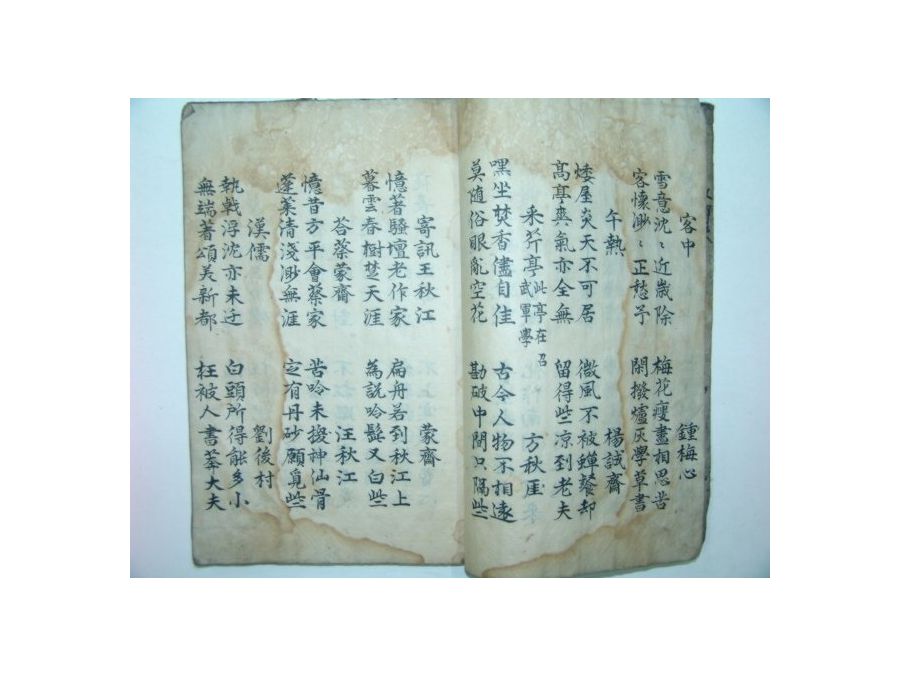 客中 鍾梅心
雪意沈〻近歲除 梅花瘦盡相思苦
客懷渺〻正愁予 閑撥爐灰學草書
午熱 楊誠齋
矮屋炎天不可居 微風不被蟬餮却
高亭爽氣亦全無 留得些凉到老夫
采芹亭 此亭在召武軍學 方秋厓
嘿坐焚香儘自佳 古今人物不相遠
莫隨俗眼亂空花 勘破中間只隔些
寄訊王秋江 蒙齋
憶著騷壇老作家 扁舟若到秋江上
暮雲春樹楚天涯 為說吟髭又白些
荅蔡蒙齋 汪秋江
憶昔方平會蔡家 苦吟未換神仙骨
蓬萊清淺渺無涯 定有丹砂願覓些
漢儒 劉後村
執戟浮沈亦未迂 白頭所得能多小
無端著頌美新都 枉被人書莽大夫